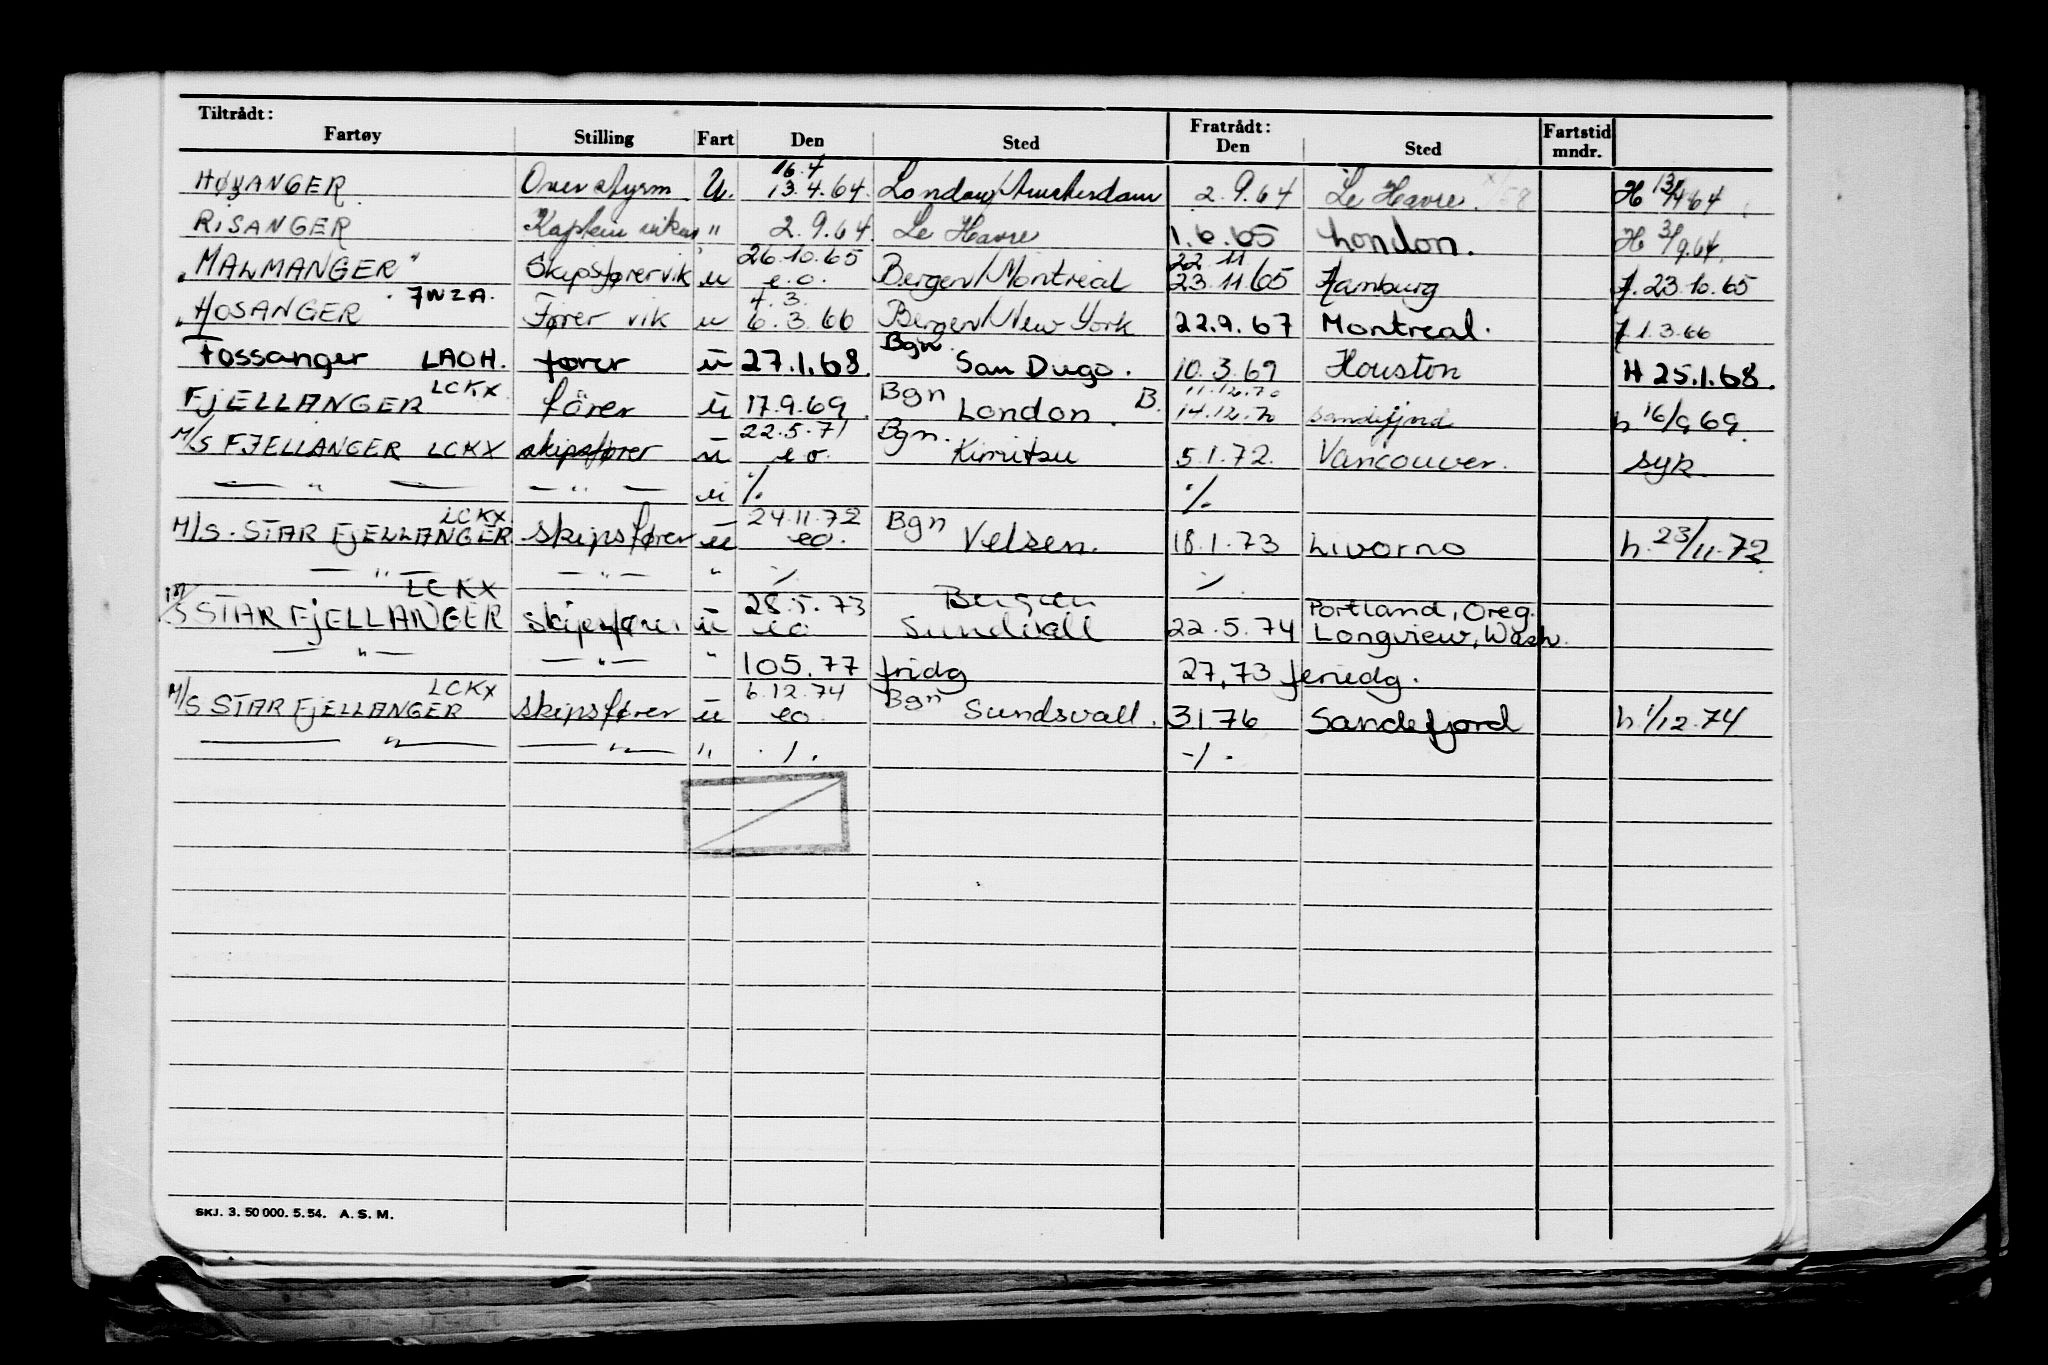 Tiltrådt: Fratrådt: Fartstid mndr.
Fartøy Stilling Fart Den Sted Den Sted
16.4
HØYANGER Overstyrm U. 13.4.64. London/Amsterdam 2.9.64 Le Havre. H 13/4 64
RISANGER Kaptein vikar " 2.9.64. Le Havre 1.6.65 London. H 3/9.64
26.10.65 22 11
"MALMANGER" Skipsfører vik u e.o. Bergen/Montreal 23.11.65 Hamburg f. 23.10.65
JWZA. 4.3.
"HOSANGER Fører vik u 6.3.66 Bergen/New York 22.9.67 Montreal. f 1.3.66
Bgn.
Fossanger LAOH. fører u 27.1.68. San Diego. 10.3.69 Houston H 25.1.68.
LCKX Bgn B. 11.12.70
FJELLANGER förer u 17.9.69 London. 14.12.70 Sandefjord h 16/9 69.
22.5.71 Bgn.
M/S FJELLANGER LCKX skipsfører u eo. Kimitsu 5.1.72. Vancouver. syk
— " — — " — u % %
LCKX 24.11.72 Bgn
M/S. STAR FJELLANGER skipsfører u eo. Velsen. 18.1.73 Livorno h. 23/11.72
— " — — " — " % %
LCKX 28.5.73 Bergen Portland, Oreg.
M/S STAR FJELLANGER skipsfører u eo Sundsvall 22.5.74 Longview, Wash.
— " — — " — " 105.77 fridg 27,73 feriedg.
LCKX 6.12.74 Bgn
M/S STAR FJELLANGER skipsfører u eo. Sundsvall. 3176 Sandefjord h 1/12.74
— " — — " — " % %
SKJ. 3. 50 000. 5. 54. A. S. M.